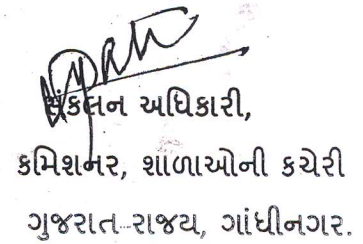 સંકલન અધિકારી,
કમિશનર, શાળાઓની કચેરી
ગુજરાત રાજ્ય, ગાંધીનગર.